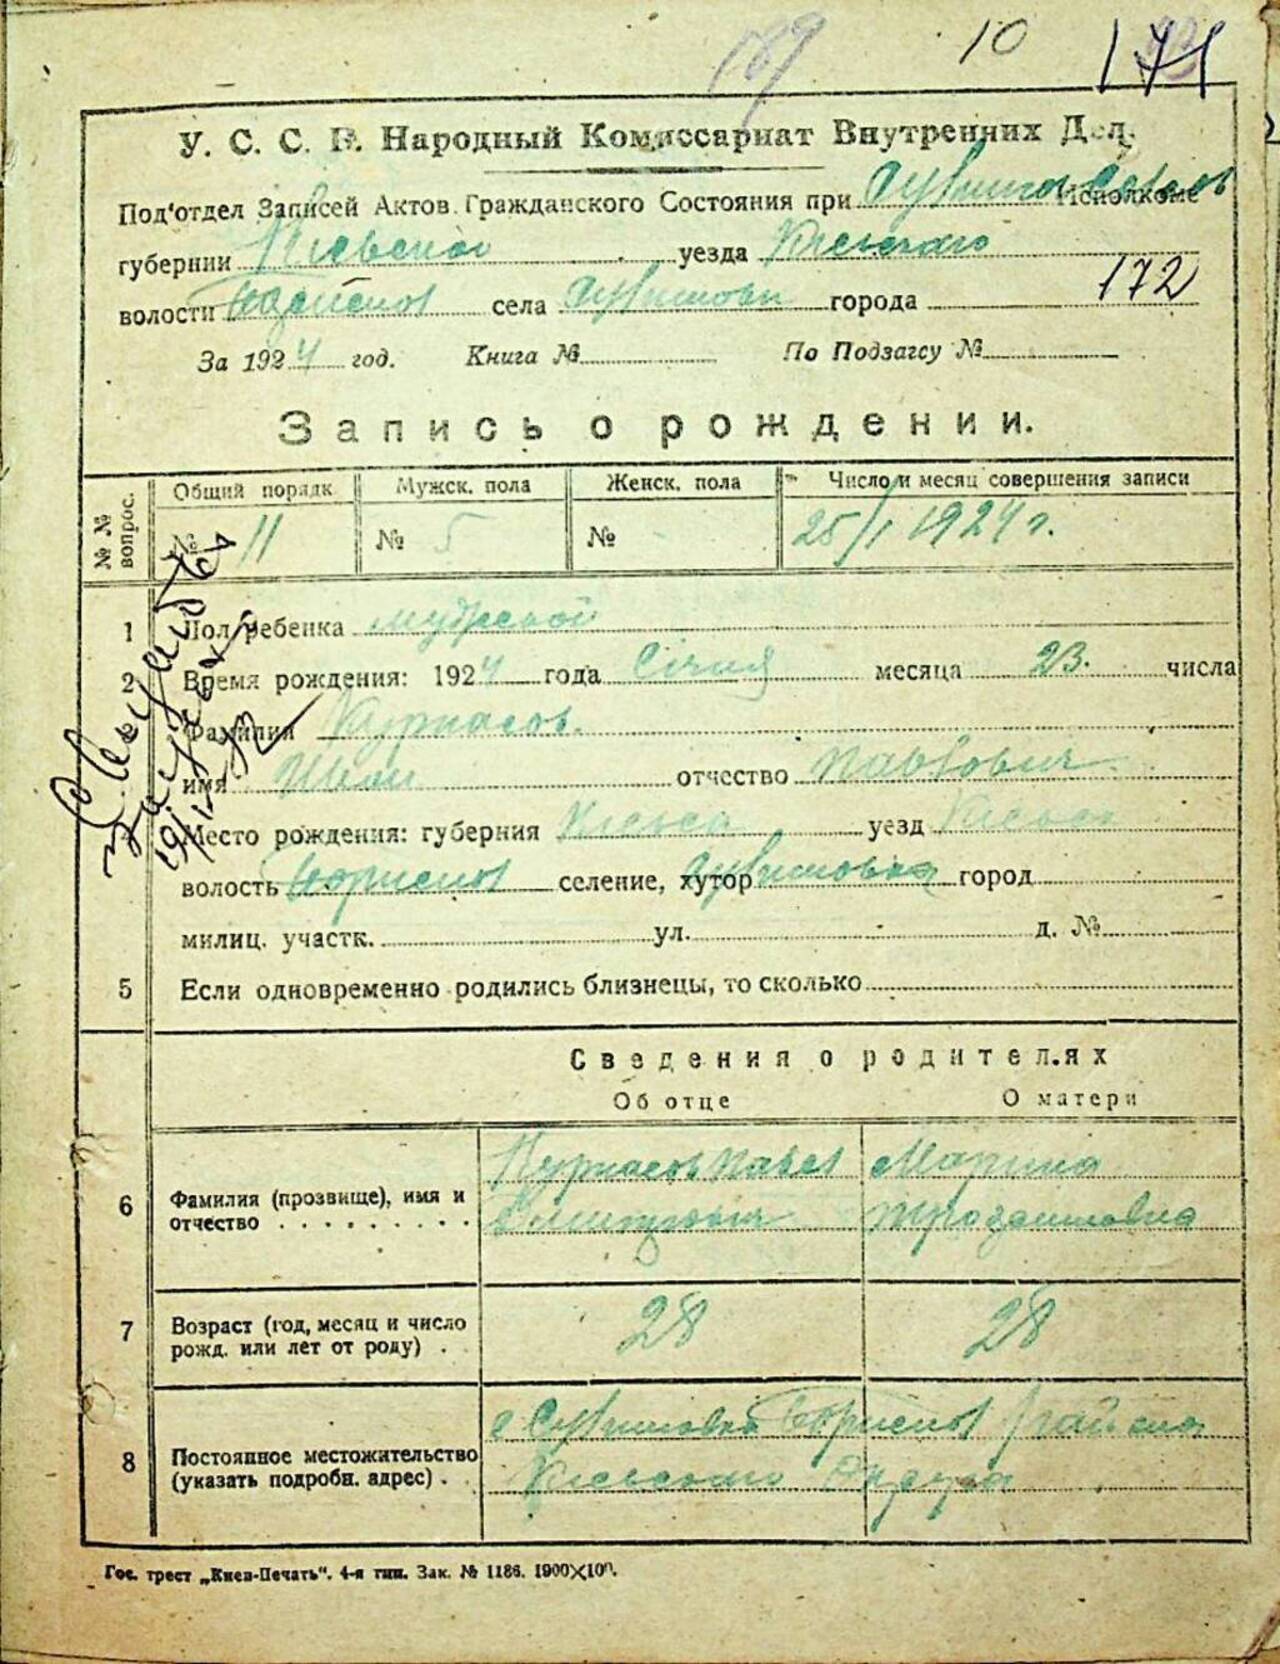 189 10 171
У. С. С. Р. Народный Комиссариат Внутренних Дел.
Под'отдел Записей Актов Гражданского Состояния при Исполкоме
губернии Киевской уезда Киевского
волости села города 172
За 1924 год. Книга № По Подзагсу №
Запись о рождении.
№ № вопрос. Общий порядк. Мужск. пола Женск. пола Число и месяц совершения записи
№ 11 № 5 № 25/I 1924 г.
1 Пол ребенка мужской
2 Время рождения: 1924 года Січня месяца 23. числа
Фамилия
имя Иван отчество Павлович
Место рождения: губерния Киевск уезд Киевск
волость Бориспол селение, хутор город
милиц. участк. ул. д. №
5 Если одновременно родились близнецы, то сколько
Сведения о родителях
Об отце О матери
6 Фамилия (прозвище), имя и отчество Павел Марина
Дмитрович
7 Возраст (год, месяц и число рожд. или лет от роду) 28 28
8 Постоянное местожительство (указать подробн. адрес)
Киевского Округа
Гос. трест „Киев-Печать“. 4-я тип. Зак. № 1186. 1900×100.